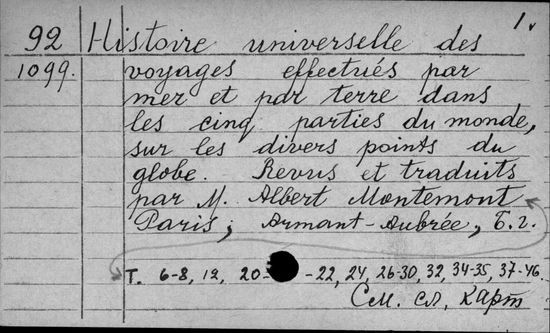 1.
92 Histoire universelle des
1099. voyages effectués par
mer et par terre dans
les cinq parties du monde,
sur les divers points du
globe. Revus et traduits
par M. Albert Montemont
Paris, Armant-Aubrée, Б.г.
Т. 6-8, 12, 20- -22, 24, 26-30, 32, 34-35, 37-46.
См. сл. карт